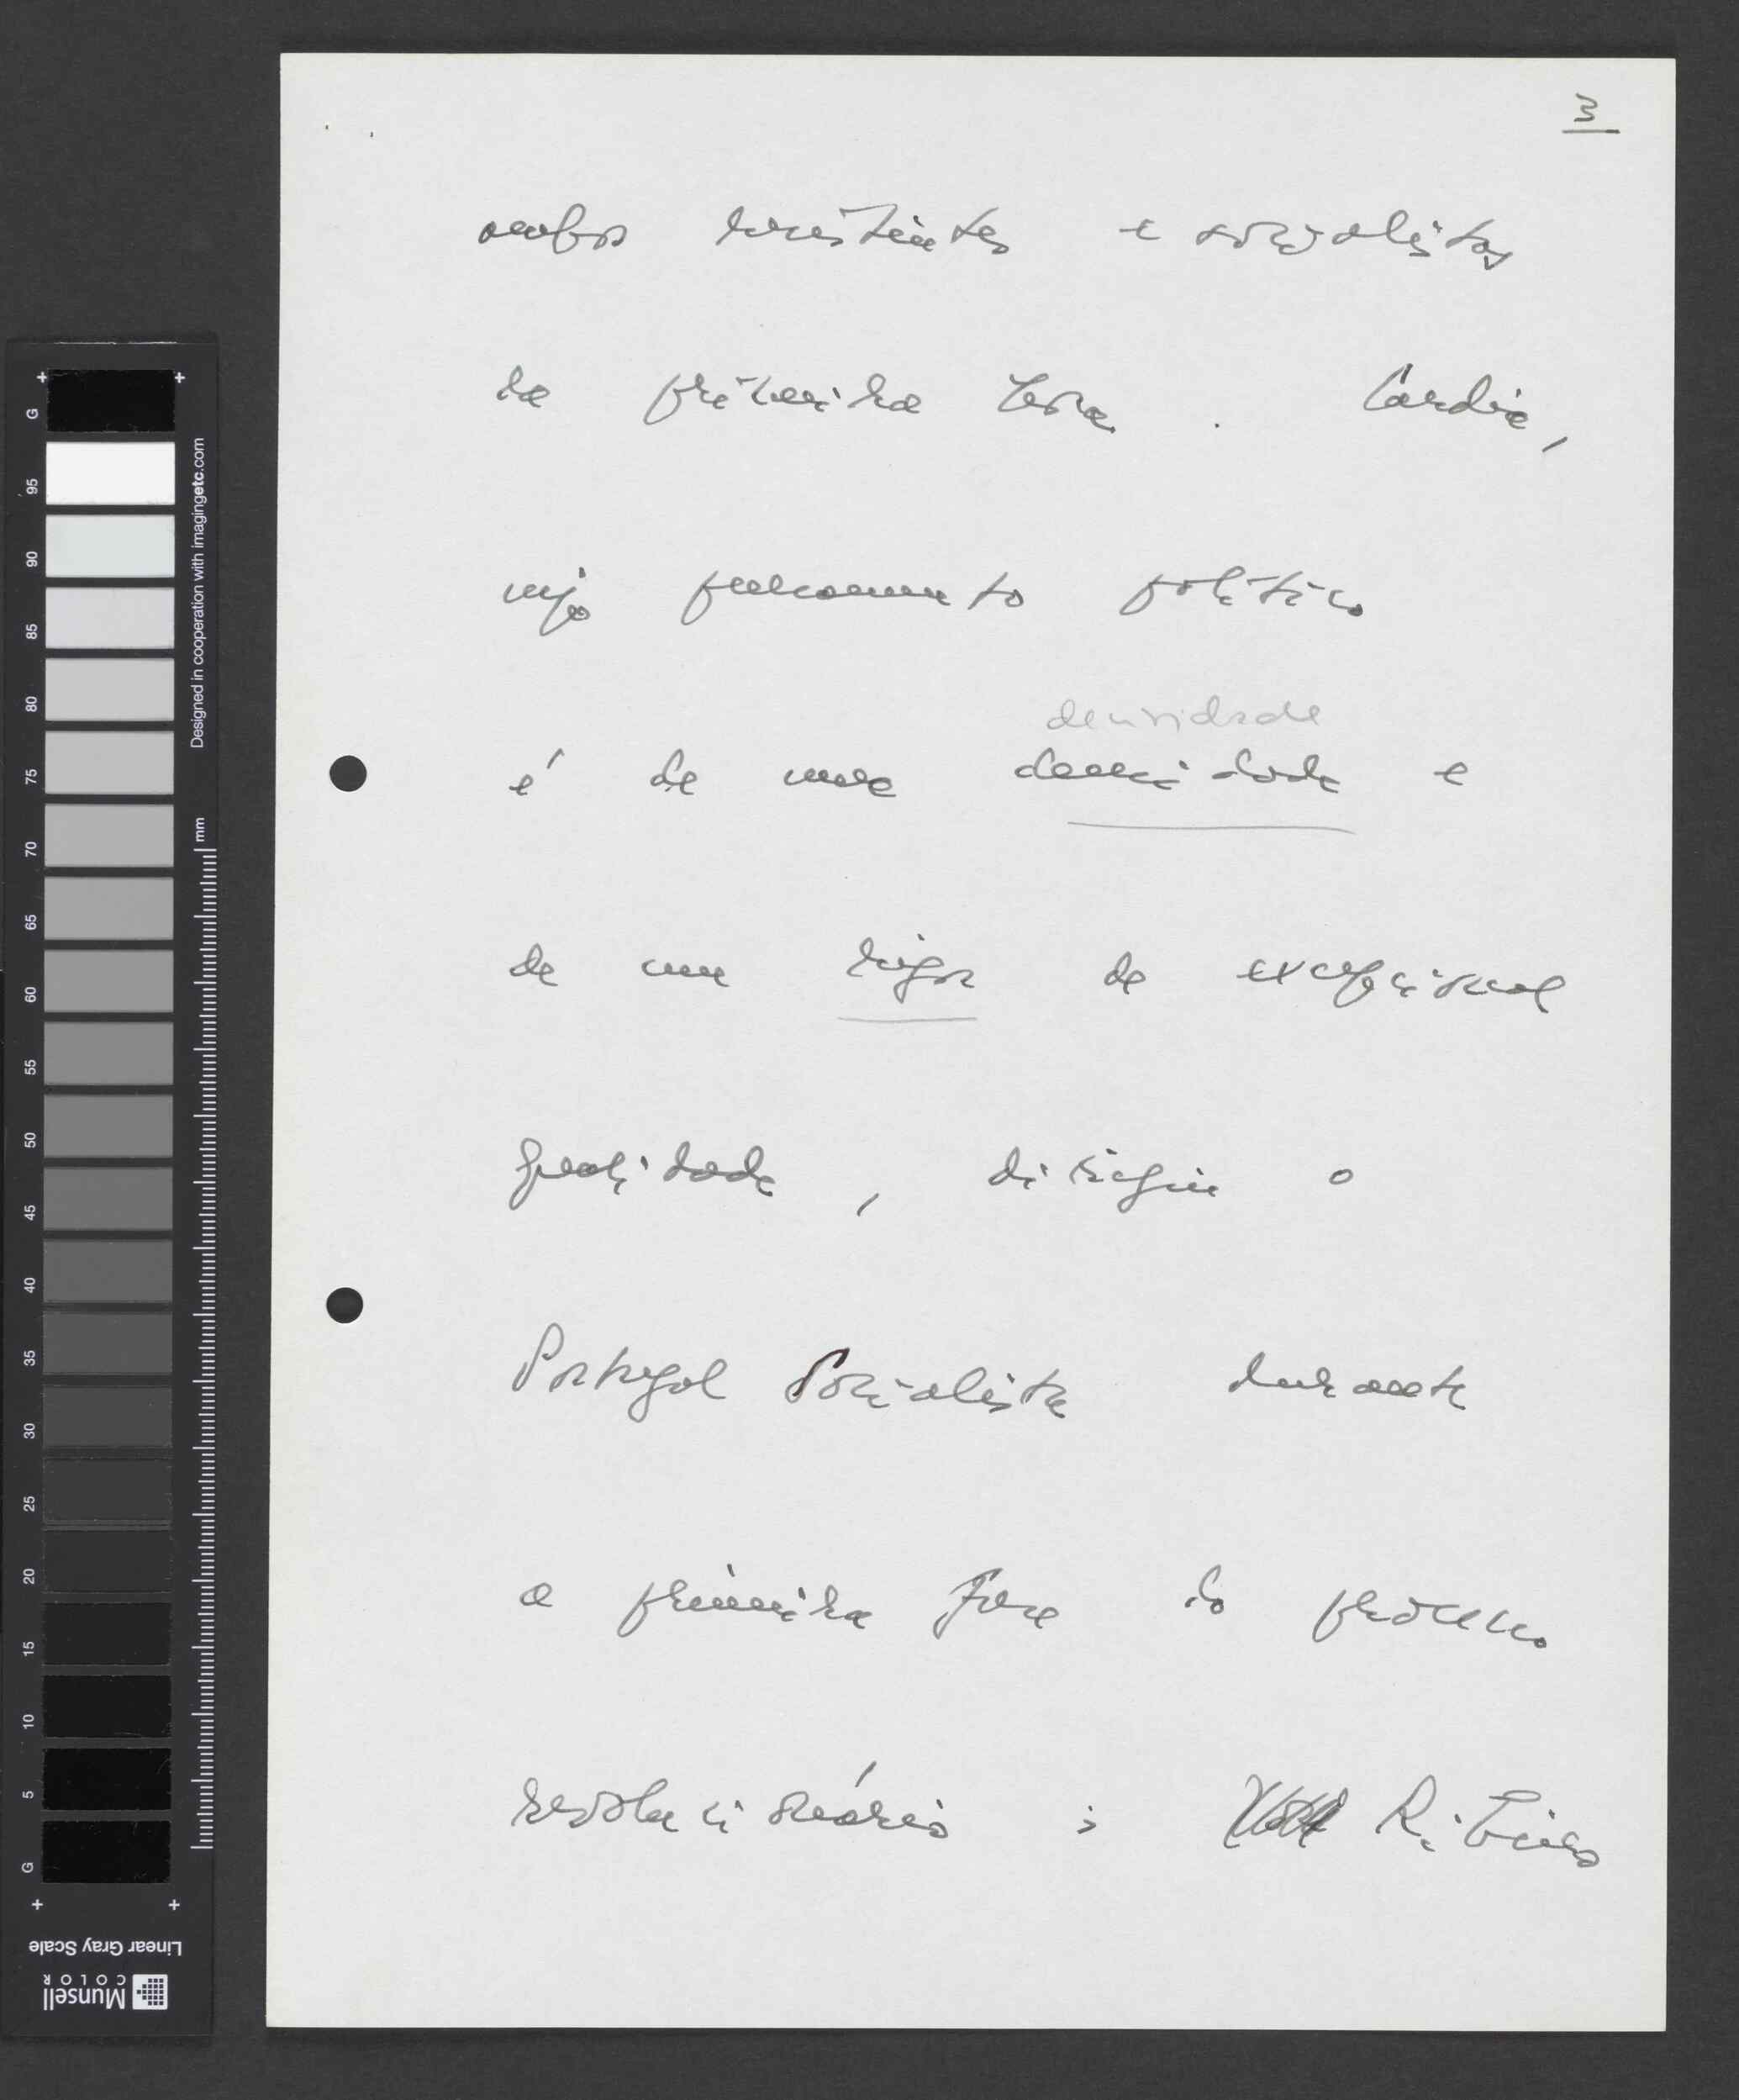 3
ambos resistentes e socialistas
da primeira hora. Cardia,
cujo pensamento político
densidade
é de uma densidade e
de um rigor de excepcional
qualidade, dirigiu o
Portugal Socialista durante
a primeira fase do processo
revolucionário;
G 95 90 85 80 75 70 65 60 55 50 45 40 35 30 25 20 15 10 5 G
mm
Designed in cooperation with imagingetc.com
Linear Gray Scale
Munsell
COLOR